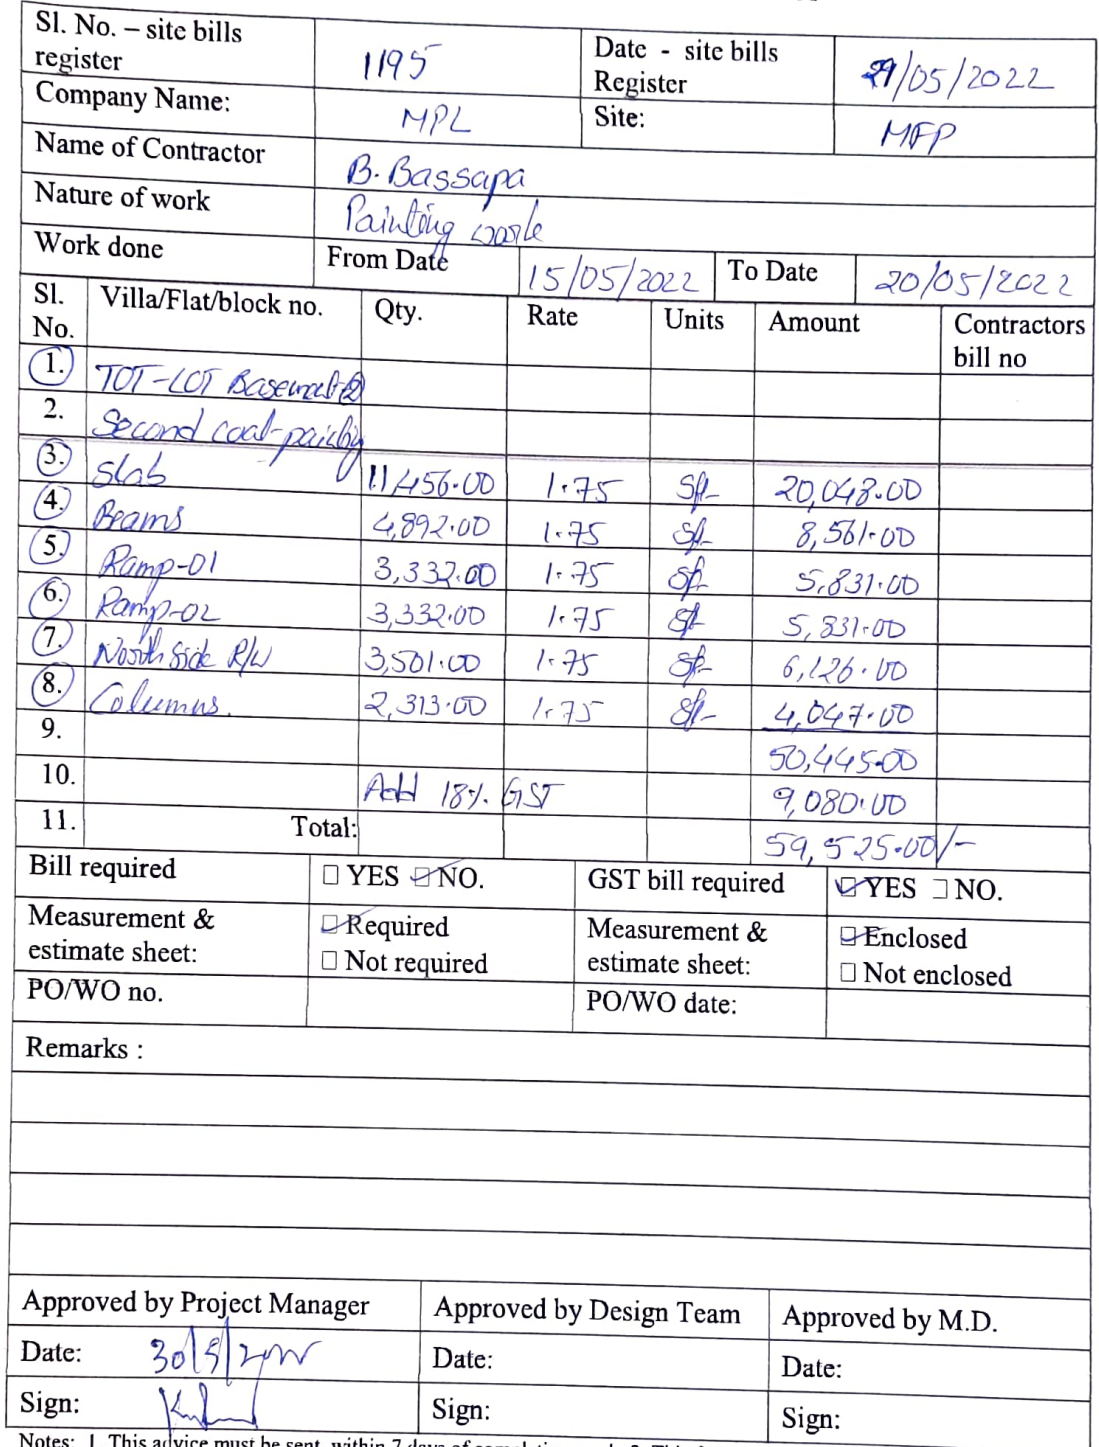 Sl. No. – site bills register 1195 Date - site bills Register /05/2022
Company Name: MPL Site: MFP
Name of Contractor B. Bassapa
Nature of work Painting work
Work done From Date 15/05/2022 To Date 20/05/2022
Sl. No. Villa/Flat/block no. Qty. Rate Units Amount Contractors bill no
1. TOT-LOT Basement-2
2. Second coat-painting
3. Slab 11,456.00 1.75 Sft 20,048.00
4. Beams 4,892.00 1.75 Sft 8,561.00
5. Ramp-01 3,332.00 1.75 Sft 5,831.00
6. Ramp-02 3,332.00 1.75 Sft 5,831.00
7. North Side R/W 3,501.00 1.75 Sft 6,126.00
8. Columns. 2,313.00 1.75 Sft 4,047.00
9. 50,445.00
10. Add 18%. GST 9,080.00
11. Total: 59,525.00/-
Bill required □ YES ☑ NO. GST bill required ☑ YES □ NO.
Measurement & estimate sheet: ☑ Required □ Not required Measurement & estimate sheet: ☑ Enclosed □ Not enclosed
PO/WO no. PO/WO date:
Remarks :
Approved by Project Manager Approved by Design Team Approved by M.D.
Date: 30/5/2022 Date: Date:
Sign: Sign: Sign:
Notes: 1. This advice must be sent within 7 days of